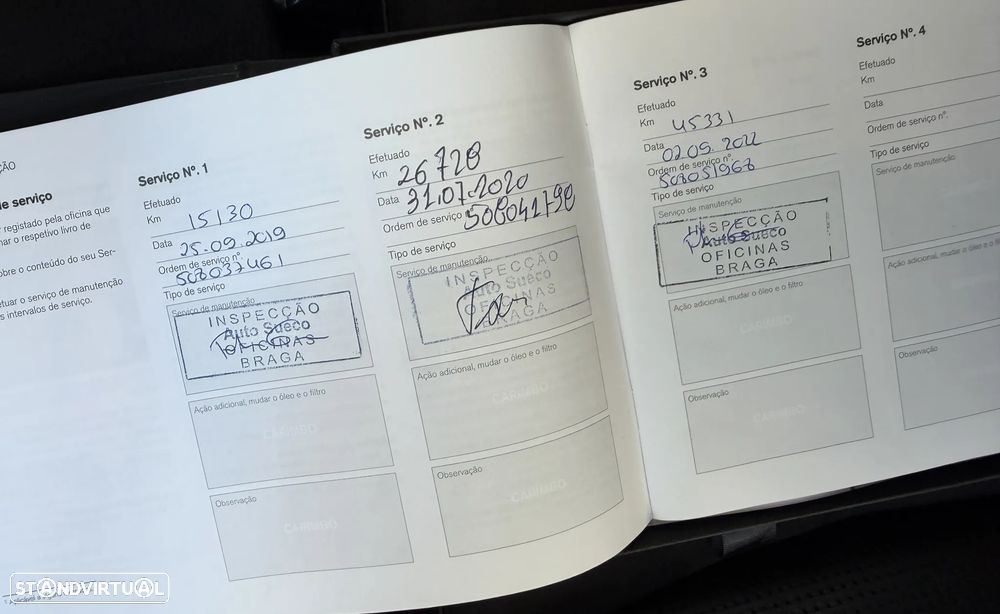 ÇÃO
e serviço
r registado pela oficina que
nar o respetivo livro de
obre o conteúdo do seu Ser-
tuar o serviço de manutenção
s intervalos de serviço.
Serviço Nº. 1
Efetuado
Km 15130
Data 25.09.2019
Ordem de serviço nº.
508037461
Tipo de serviço
Serviço de manutenção
INSPECÇÃO
Auto Sueco
OFICINAS
BRAGA
Ação adicional, mudar o óleo e o filtro
CARIMBO
Observação
CARIMBO
Serviço Nº. 2
Efetuado
Km 26728
Data 31.07.2020
Ordem de serviço 508041798
Tipo de serviço
Serviço de manutenção
INSPECÇÃO
Auto Sueco
OFICINAS
BRAGA
Ação adicional, mudar o óleo e o filtro
CARIMBO
Observação
CARIMBO
Serviço Nº. 3
Efetuado
Km 45331
Data 02.09.2022
Ordem de serviço nº.
508051968
Tipo de serviço
Serviço de manutenção
INSPECÇÃO
Auto Sueco
OFICINAS
BRAGA
Ação adicional, mudar o óleo e o filtro
CARIMBO
Observação
CARIMBO
Serviço Nº. 4
Efetuado
Km
Data
Ordem de serviço nº.
Tipo de serviço
Serviço de manutenção
Ação adicional, mudar o óleo e o f
Observação
STANDVIRTUAL